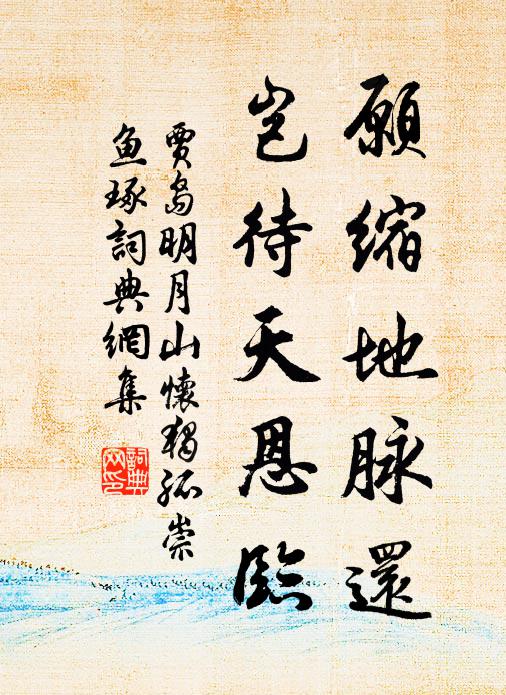 願縮地脉還
豈待天恩臨
賈島明月山懷獨孤崇
魚琢詞典網集
詞典
网印